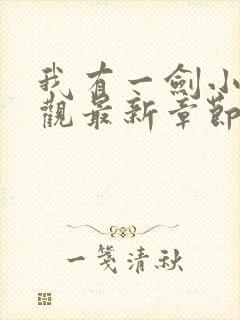 我有一劍小
觀最新章節
一笺清秋